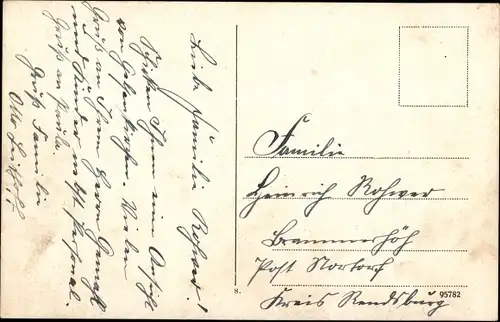 Liebe Familie Rohwer!
Schicken Ihnen eine Ansicht
von Gelsenkirchen. Vielen
Gruß an Ihren Herrn Gemahl
und Kinder u. Personal.
Gruß an Paula.
Gruß Familie
Otto
Familie
Heinrich Rohwer
Brammerhöh
Post Nortorf
Kreis Rendsburg
8.
95782